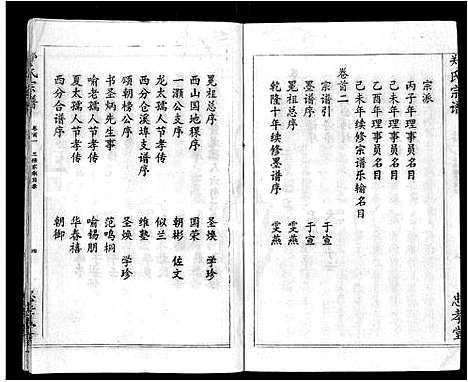 郑氏宗谱
忠孝堂
宗派
丙子年理事员名目
乙酉年理事员名目
己未年理事员名目
己未年续修宗谱乐输名目
卷首二
宗谱引 于宣
墨谱序 于宣
乾隆十年续修墨谱序 雯燕
冕祖总序 圣焕 学珍
西山国稞序 国荣
一灏公支序 朝彬 佐文
龙太孺人节孝传 似兰
西分仓溪埠支谱序 维塾
颂朝榜公序 圣焕 学珍
书圣炳先生事 范鸣桐
喻老孺人节孝传 喻锡朋
夏太孺人节孝传 华春禧
西分合谱序 朝御
氏宗谱
卷首一
四